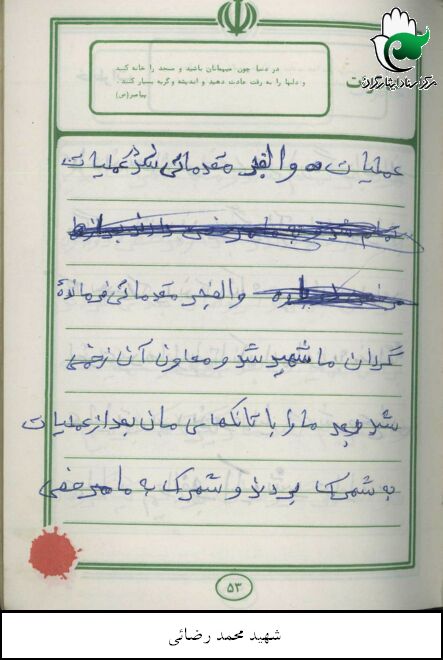 مرکز اسناد ایثارگران
در دنیا چون میهمانان باشید و مسجد را خانه کنید
و دلها را به رقت عادت دهید و اندیشه و گریه بسیار کنید.
پیامبر(ص)
عملیات والفجر مقدماتی شد عملیات
والفجر مقدماتی فرماندهٔ
گردان ما شهید شد و معاون آن زخمی
شد و بعد ما را با تانکهای مان بعد از عملیات
به شهرک بردند و شهرک به ما مرخصی
۵۳
شهید محمد رضائی